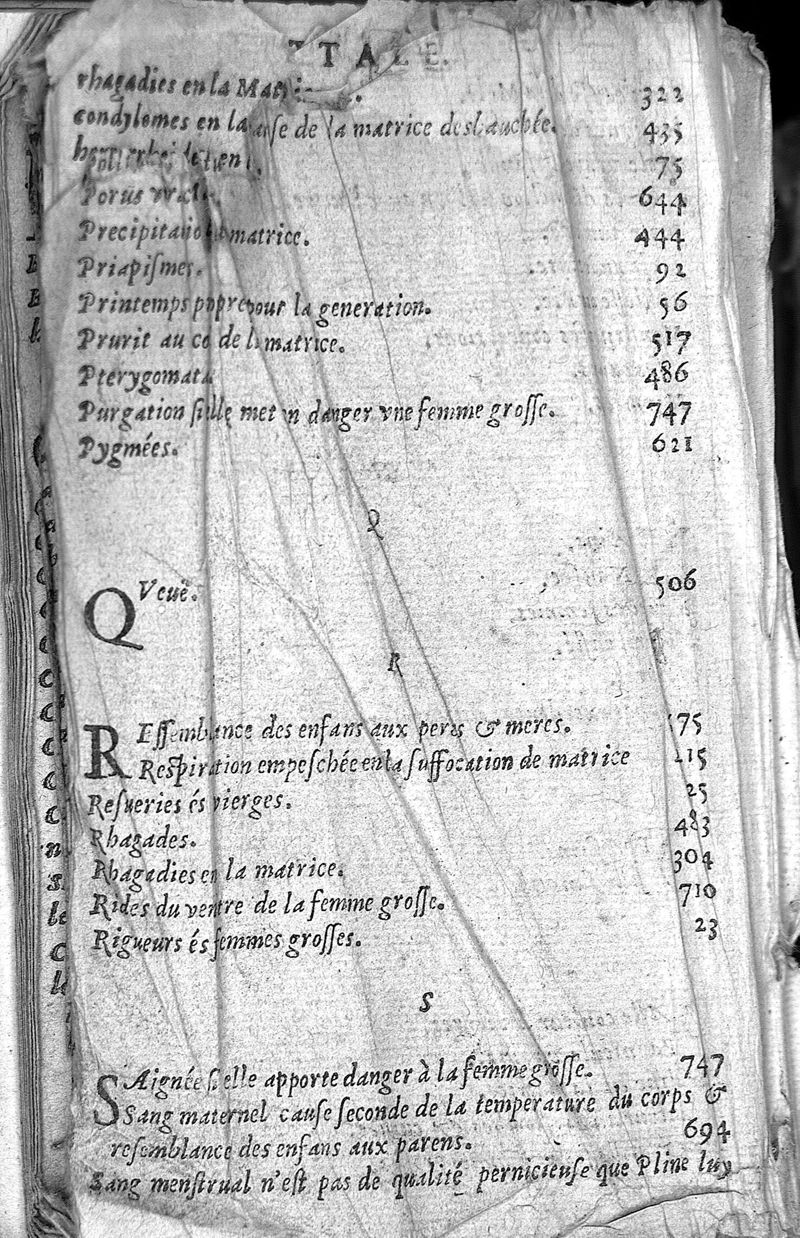 TTALE.
rhagadies en la 322
condylomes en la de la matrice desbauchée. 435
75
Porus 644
Precipitatio matrice. 444
Priapiſmes. 92
Printemps pour la generation. 56
Prurit au de la matrice. 517
Pterygomata 486
Purgation ſi elle met en danger vne femme groſſe. 747
Pygmées. 621
Q
QVeuë. 506
R
REſſemblance des enfans aux peres & meres. 75
Reſpiration empeſchée en la ſuffocation de matrice 215
Reſueries és vierges. 25
Rhagades. 483
Rhagadies en la matrice. 304
Rides du ventre de la femme groſſe. 710
Rigueurs és femmes groſſes. 23
S
SAignée ſi elle apporte danger à la femme groſſe. 747
Sang maternel cauſe ſeconde de la temperature du corps &
reſemblance des enfans aux parens. 694
Sang menſtrual n'eſt pas de qualité pernicieuſe que Pline luy